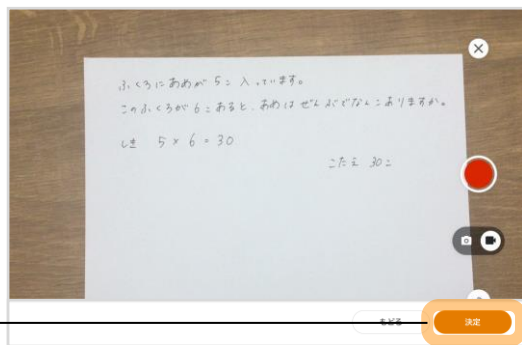 ふくろにあめが5こ入っています。
このふくろが6こあると、あめはぜんぶでなんこありますか。
しき 5 × 6 = 30
こたえ 30こ
もどる
決定